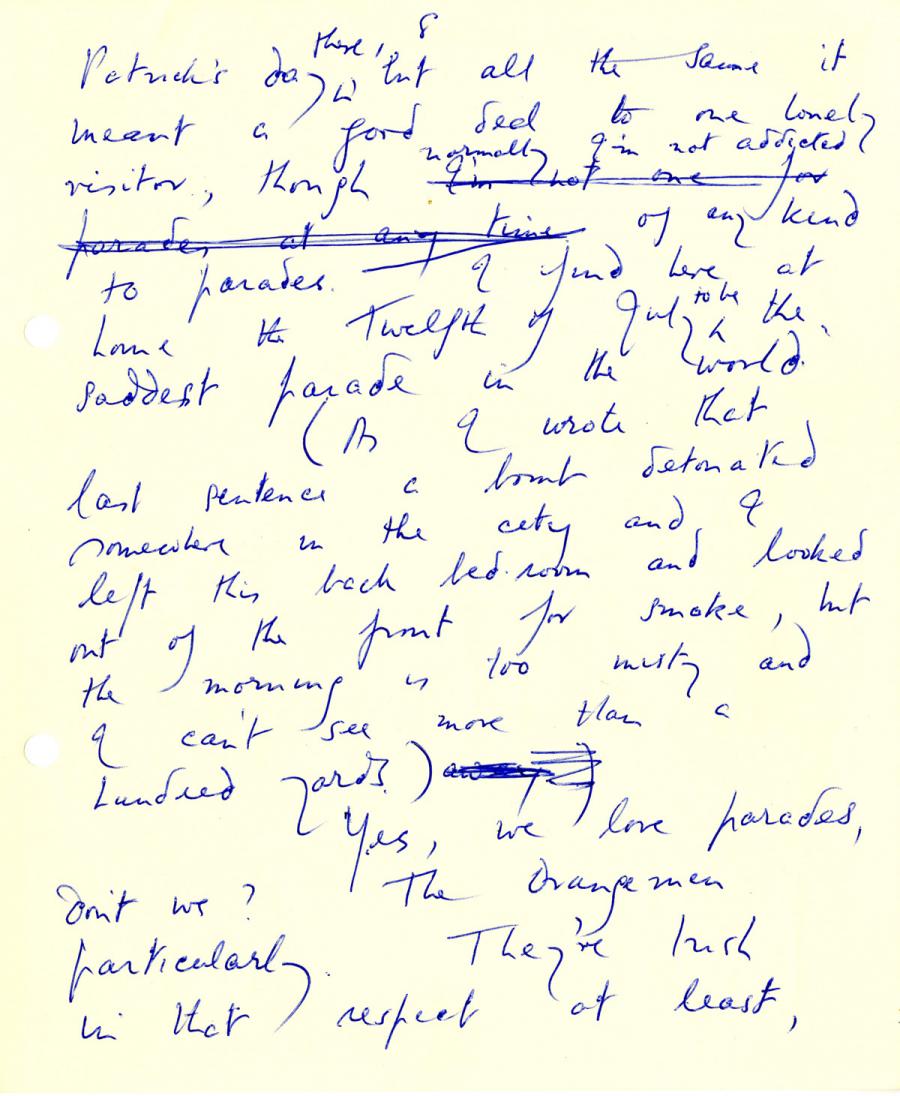 there, 8
Patrick's day, but all the same it
meant a good deal to one lonely
normally I'm not addicted
visitor, though I'm not one for
parades at any time of any kind
to parades. I find here at
to be
home the Twelfth of July the
saddest parade in the world.
(As I wrote that
last sentence a bomb detonated
somewhere in the city and I
left this back bed-room and looked
out of the front for smoke, but
the morning is too misty and
I can't see more than a
hundred yards.) away)
Yes, we love parades,
don't we? The Orangemen
particularly. They're Irish
in that respect at least,